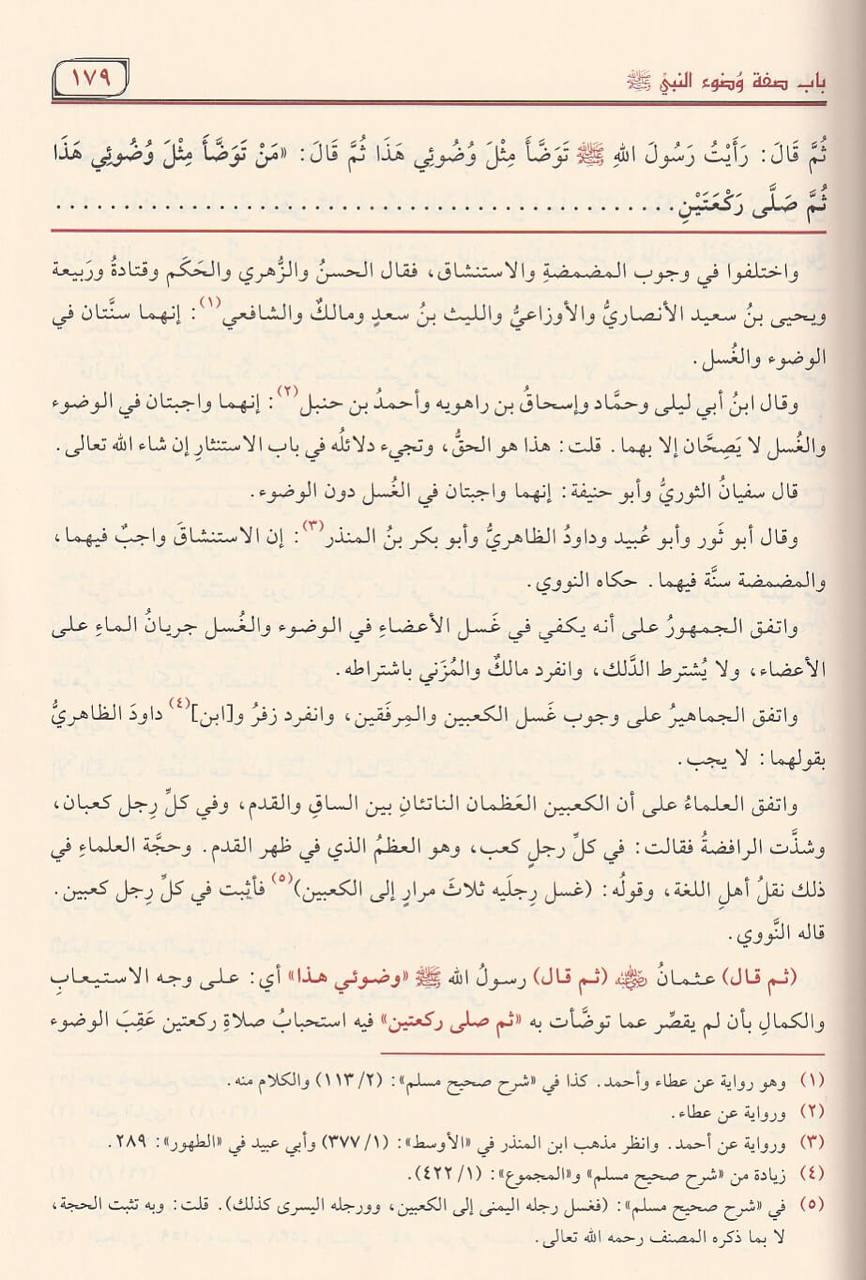 باب صفة وُضوء النبيّ ﷺ
١٧٩
ثُمَّ قَالَ: رَأَيْتُ رَسُولَ اللهِ ﷺ تَوَضَّأَ مِثْلَ وُضُوئِي هَذَا ثُمَّ قَالَ: «مَنْ تَوَضَّأَ مِثْلَ وُضُوئِي هَذَا
ثُمَّ صَلَّى رَكْعَتَيْنِ. . . . . . . . . . . . . . . . . . . . . . . . . . . . . . . . . . . . . . . . . . . . .
واختلفوا في وجوب المضمضةِ والاستنشاق، فقال الحسنُ والزُّهري والحَكَم وقتادةُ ورَبيعة
ويحيى بنُ سعيد الأنصاريُّ والأوزاعيُّ والليث بنُ سعدٍ ومالكٌ والشافعي(١): إنهما سنَّتان في
الوضوء والغُسل.
وقال ابنُ أبي ليلى وحمَّاد وإسحاقُ بن راهويه وأحمدُ بن حنبل(٢): إنهما واجبتان في الوضوء
والغُسل لا يَصِحَّان إلا بهما. قلت: هذا هو الحقُّ، وتجيء دلائلُه في باب الاستنثارِ إن شاء الله تعالى.
قال سفيانُ الثوريُّ وأبو حنيفة: إنهما واجبتان في الغُسل دون الوضوء.
وقال أبو ثَور وأبو عُبيد وداودُ الظاهريُّ وأبو بكر بنُ المنذر(٣): إن الاستنشاقَ واجبٌ فيهما،
والمضمضة سنَّة فيهما. حكاه النووي.
واتفق الجمهورُ على أنه يكفي في غَسل الأعضاءِ في الوضوء والغُسل جريانُ الماءِ على
الأعضاء، ولا يُشترط الدَّلك، وانفرد مالكٌ والمُزَني باشتراطه.
واتفق الجماهيرُ على وجوب غَسل الكعبين والمِرفَقين، وانفرد زفرُ و[ابن](٤) داودَ الظاهريُّ
بقولهما: لا يجب.
واتفق العلماءُ على أن الكعبين العَظمان الناتئانِ بين الساقِ والقدم، وفي كلِّ رِجل كعبان،
وشذَّت الرافضةُ فقالت: في كلِّ رجلٍ كعب، وهو العظمُ الذي في ظهر القدم. وحجَّة العلماءِ في
ذلك نقلُ أهلِ اللغة، وقولُه: (غسل رِجلَيه ثلاثَ مرارٍ إلى الكعبين)(٥) فأثبت في كلِّ رِجل كعبين.
قاله النَّووي.
(ثم قال) عثمانُ رضي الله عنه (ثم قال) رسولُ الله ﷺ «وضوئي هذا» أي: على وجه الاستيعابِ
والكمالِ بأن لم يقصِّر عما توضَّأت به «ثم صلى ركعتين» فيه استحبابُ صلاةِ ركعتين عَقِبَ الوضوء
(١) وهو رواية عن عطاء وأحمد. كذا في «شرح صحيح مسلم»: (٢/ ١١٣) والكلام منه.
(٢) ورواية عن عطاء.
(٣) ورواية عن أحمد. وانظر مذهب ابن المنذر في «الأوسط»: (١/ ٣٧٧) وأبي عبيد في «الطهور»: ٢٨٩.
(٤) زيادة من «شرح صحيح مسلم» و«المجموع»: (١/ ٤٢٢).
(٥) في «شرح صحيح مسلم»: (فغسل رجله اليمنى إلى الكعبين، وورجله اليسرى كذلك). قلت: وبه تثبت الحجة،
لا بما ذكره المصنف رحمه الله تعالى.